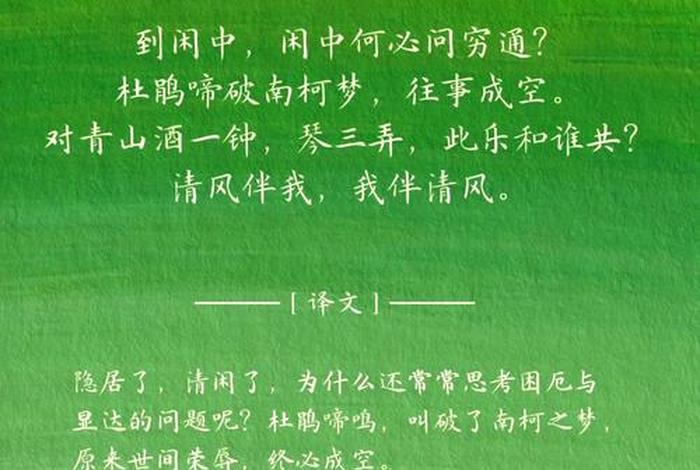 到闲中，闲中何必问穷通？
杜鹃啼破南柯梦，往事成空。
对青山酒一钟，琴三弄，此乐和谁共？
清风伴我，我伴清风。
[译文]
隐居了，清闲了，为什么还常常思考困厄与
显达的问题呢？杜鹃啼鸣，叫破了南柯之梦，
原来世间荣辱，终必成空。